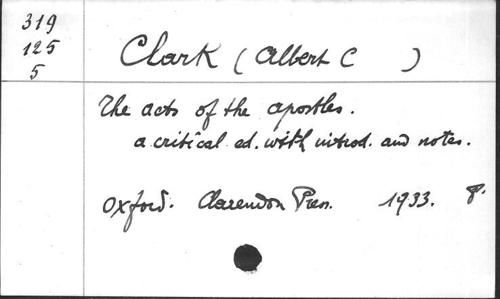 319
125
5
Clark (Albert C )
The acts of the apostles.
a critical ed. with introd. and notes.
Oxford. Clarendon Press. 1933. 8.